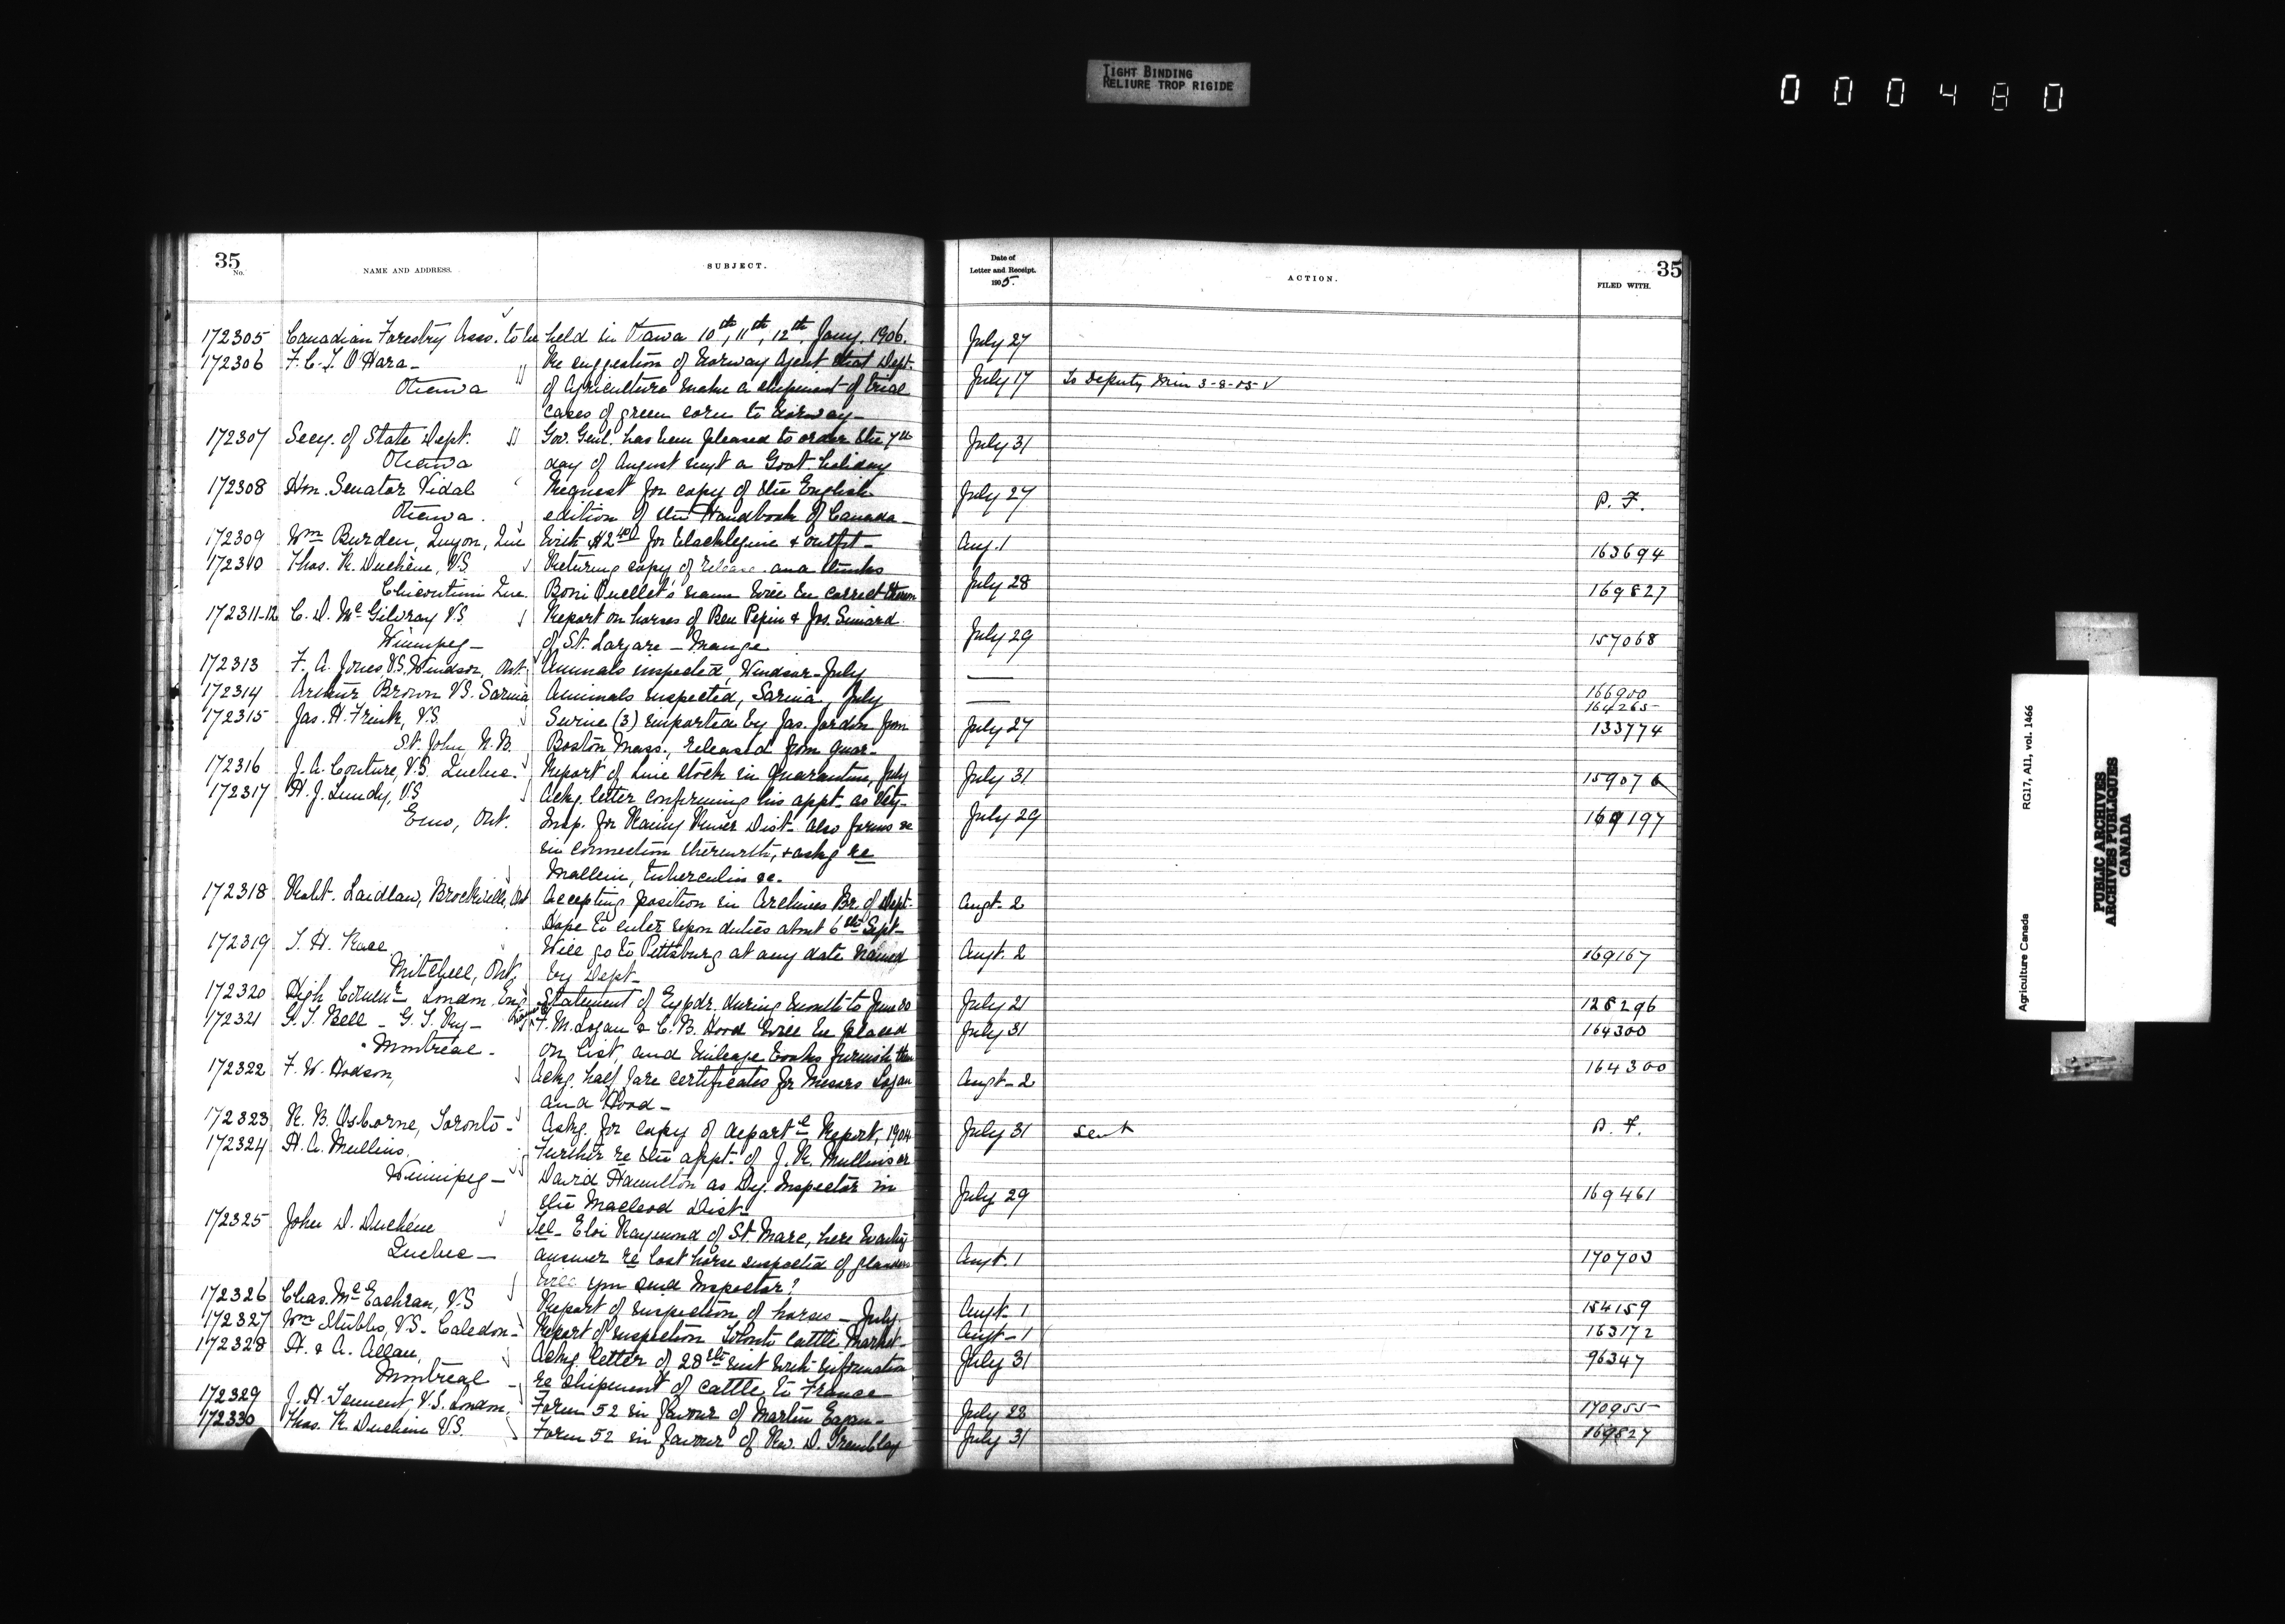 TIGHT BINDING
RELIURE TROP RIGIDE
000480
35
No.
NAME AND ADDRESS.
SUBJECT.
Date of
Letter and Receipt.
1905.
ACTION.
35
FILED WITH.
172305 Canadian Forestry Asso. to be held in Ottawa 10th, 11th, 12th, Jany. 1906. July 27
172306 F. C. T. O'Hara- Re suggestion of Norway Agent that Dept.
Ottawa of Agriculture make a shipment of trial July 17 To Deputy Min 3-8-05 √
cases of green corn to Norway-
172307 Secy. of State Dept. Gov. Genl. has been pleased to order the 7th July 31
Ottawa day of August next a Govt. holiday
172308 Hon. Senator Vidal Request for copy of the English July 27 P. F.
Ottawa. edition of the Handbook of Canada-
172309 Wm Burden, Quyon, Que With $2.40 for blacklegine & outfit- Aug. 1 163694
172310 Thos. R. Duchène, V.S. Returning copy of release and thinks
Chicoutimi Que. Boni Ouellet's name will be correct then July 28 169827
172311-12 C. D. McGilvray V.S. Report on horses of Ben Pepin & Jos. Simard
Winnipeg- of St. Lazare - Mange July 29 157068
172313 F. A. Jones, V.S. Windsor, Ont. Animals inspected, Windsor-July — 166900
172314 Arthur Brown V.S. Sarnia Animals inspected, Sarnia, July — 164265
172315 Jas. H. Frink, V.S. Swine (3) imported by Jas. Jardin from July 27 133774
St. John N.B. Boston Mass., released from quar-
172316 J. A. Couture, V.S. Quebec. Report of live stock in quarantine, July July 31 159076
172317 H. J. Lundy, V.S Ackg. letter confirming his appt. as Vety-
Emo, Ont. Insp. for Rainy River Dist- also forms &c July 29 169197
in connection therewith, & askg re
Mallein, tuberculin &c.
172318 Robt. Laidlaw, Brockville, Ont Accepting position in Archives Br. of Dept- Augt. 2
Hope to enter upon duties about 6th Sept-
172319 T. H. Race Will go to Pittsburg at any date named Augt. 2 169167
Mitchell, Ont. by Dept-
172320 High Commr London, Eng Statement of Expdr. during month to June 30 July 21 128296
172321 G. T. Bell - G. T. Ry- F. M. Logan & C. B. Hood will be placed July 31 164300
Montreal- on list, and mileage books furnish them
172322 F. W. Hodson, Ackg. half fare certificates for Messrs Logan Augt- 2 164300
and Hood-
172323 R. B. Osborne, Toronto- Askg. for copy of departl Report, 1904 July 31 sent P. F.
172324 H. A. Mullins, Further re the appt. of J. R. Mullins or
Winnipeg- David Hamilton as Dy. Inspector in July 29 169461
the Macleod Dist-
172325 John D. Duchène Tel- Eloi Raymond of St. Marc, here wanting
Quebec- answer re lost horse suspected of glanders Augt. 1 170703
Will you send Inspector?
172326 Chas. McEachran, V.S Report of inspection of horses - July. Augt- 1 154159
172327 Wm Stubbs, V.S. Caledon- Report of inspection Toronto Cattle Market- Augt- 1 163172
172328 H. & A. Allan, Ackg. letter of 28th inst with information July 31 96347
Montreal re shipment of cattle to France
172329 J. H. Tennent, V.S. London, Form 52 in favour of Martin Eagan- July 28 170955
172330 Thos. R. Duchène V.S. Form 52 in favour of Rev. D. Tremblay July 31 169827
Agriculture Canada RG17, A11, vol. 1466
PUBLIC ARCHIVES
ARCHIVES PUBLIQUES
CANADA